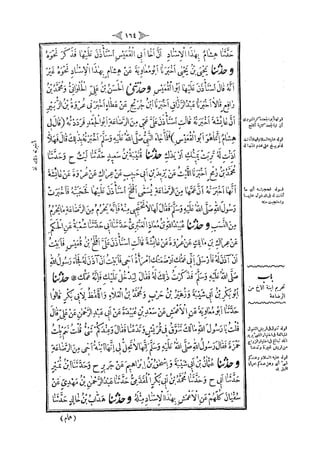 ﴿ ١٦٤ ﴾
حدثنا هشام بهذا الإسناد أن أخا أبي القعيس استأذن عليها فذكر نحوه
وحدثنا يحيى بن يحيى أخبرنا أبو معاوية عن هشام بهذا الإسناد نحوه غير
أنه قال استأذن عليها أبو القعيس وحدثني الحسن بن علي الحلواني ومحمد بن
رافع قالا أخبرنا عبد الرزاق أخبرنا ابن جريج عن عطاء أخبرني عروة بن الزبير
أن عائشة أخبرته قالت استأذن علي عمي من الرضاعة أبو الجعد فرددته (قال لي
هشام إنما هو أبو القعيس) فلما جاء النبي صلى الله عليه وسلم أخبرته بذلك قال فهلا
أذنت له تربت يمينك أو يدك حدثنا قتيبة بن سعيد حدثنا ليث ح وحدثنا
محمد بن رمح أخبرنا الليث عن يزيد بن أبي حبيب عن عراك عن عروة عن عائشة
أنها أخبرته أن عمها من الرضاعة يسمى أفلح استأذن عليها فحجبته فأخبرت
رسول الله صلى الله عليه وسلم فقال لها لا تحتجبي منه فإنه يحرم من الرضاعة ما يحرم
من النسب وحدثنا عبيد الله بن معاذ العنبري حدثنا أبي حدثنا شعبة عن الحكم
عن عراك بن مالك عن عروة عن عائشة قالت استأذن علي أفلح بن قعيس فأبيت
أن آذن له فأرسل إني عمك أرضعتك امرأة أخي فأبيت أن آذن له فجاء رسول الله
صلى الله عليه وسلم فذكرت ذلك له فقال ليدخل عليك فإنه عمك حدثنا
أبو بكر بن أبي شيبة وزهير بن حرب ومحمد بن العلاء واللفظ لأبي بكر قالوا
حدثنا أبو معاوية عن الأعمش عن سعد بن عبيدة عن أبي عبد الرحمن عن علي قال
قلت يا رسول الله مالك تنوق في قريش وتدعنا فقال وعندكم شيء قلت نعم بنت
حمزة فقال رسول الله صلى الله عليه وسلم إنها لا تحل لي إنها ابنة أخي من الرضاعة
وحدثنا عثمان بن أبي شيبة وإسحق بن إبراهيم عن جرير ح وحدثنا ابن نمير
حدثنا أبي ح وحدثنا محمد بن أبي بكر المقدمي حدثنا عبد الرحمن بن مهدي عن
سفيان كلهم عن الأعمش بهذا الإسناد مثله وحدثنا هداب بن خالد حدثنا
(همام)
باب
تحريم ابنة الأخ من
الرضاعة